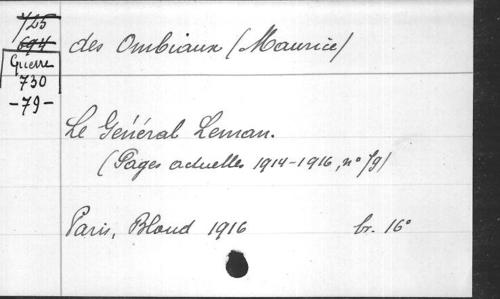 725
694
Guerre
730
-79-
des Ombiaux (Maurice)
Le Général Leman.
(Pages actuelles 1914-1916, n° 79)
Paris, Bloud 1916 br. 16°